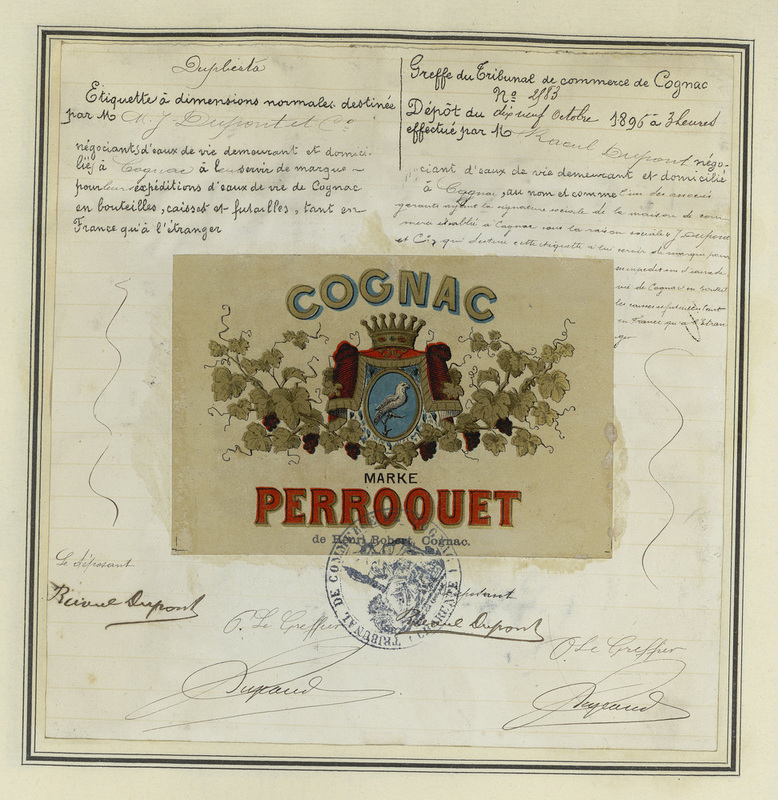 Duplicata
Etiquette à dimensions normales destinée
par M. J. Dupont et Cº
négociants d'eaux de vie demeurant et domici-
liés à Cognac à leur servir de marque
pour leurs expéditions d'eaux de vie de Cognac
en bouteilles, caisses et futailles, tant en
France qu'à l'étranger
Greffe du Tribunal de commerce de Cognac
Nº 2183
Dépôt du dix neuf Octobre 1896 à 3 heures
effectué par M. Raoul Dupont négo-
ciant d'eaux de vie demeurant et domicilié
à Cognac, au nom et comme l'un des associés
gérants ayant la signature sociale de la maison de com
merce établie à Cognac sous la raison sociale J. Dupont
et Cº, qui destine cette étiquette à lui servir de marque pour
ses expéditions d'eaux de
vie de Cognac en bouteil
les caisses et futailles tant
en France qu'à l'étran
ger
COGNAC
MARKE
PERROQUET
de Henri Robert, Cognac.
TRIBUNAL DE COMMERCE DE COGNAC (CHARENTE)
Le déposant
Raoul Dupont
P. Le Greffier
déposant
Raoul Dupont
P. Le Greffier